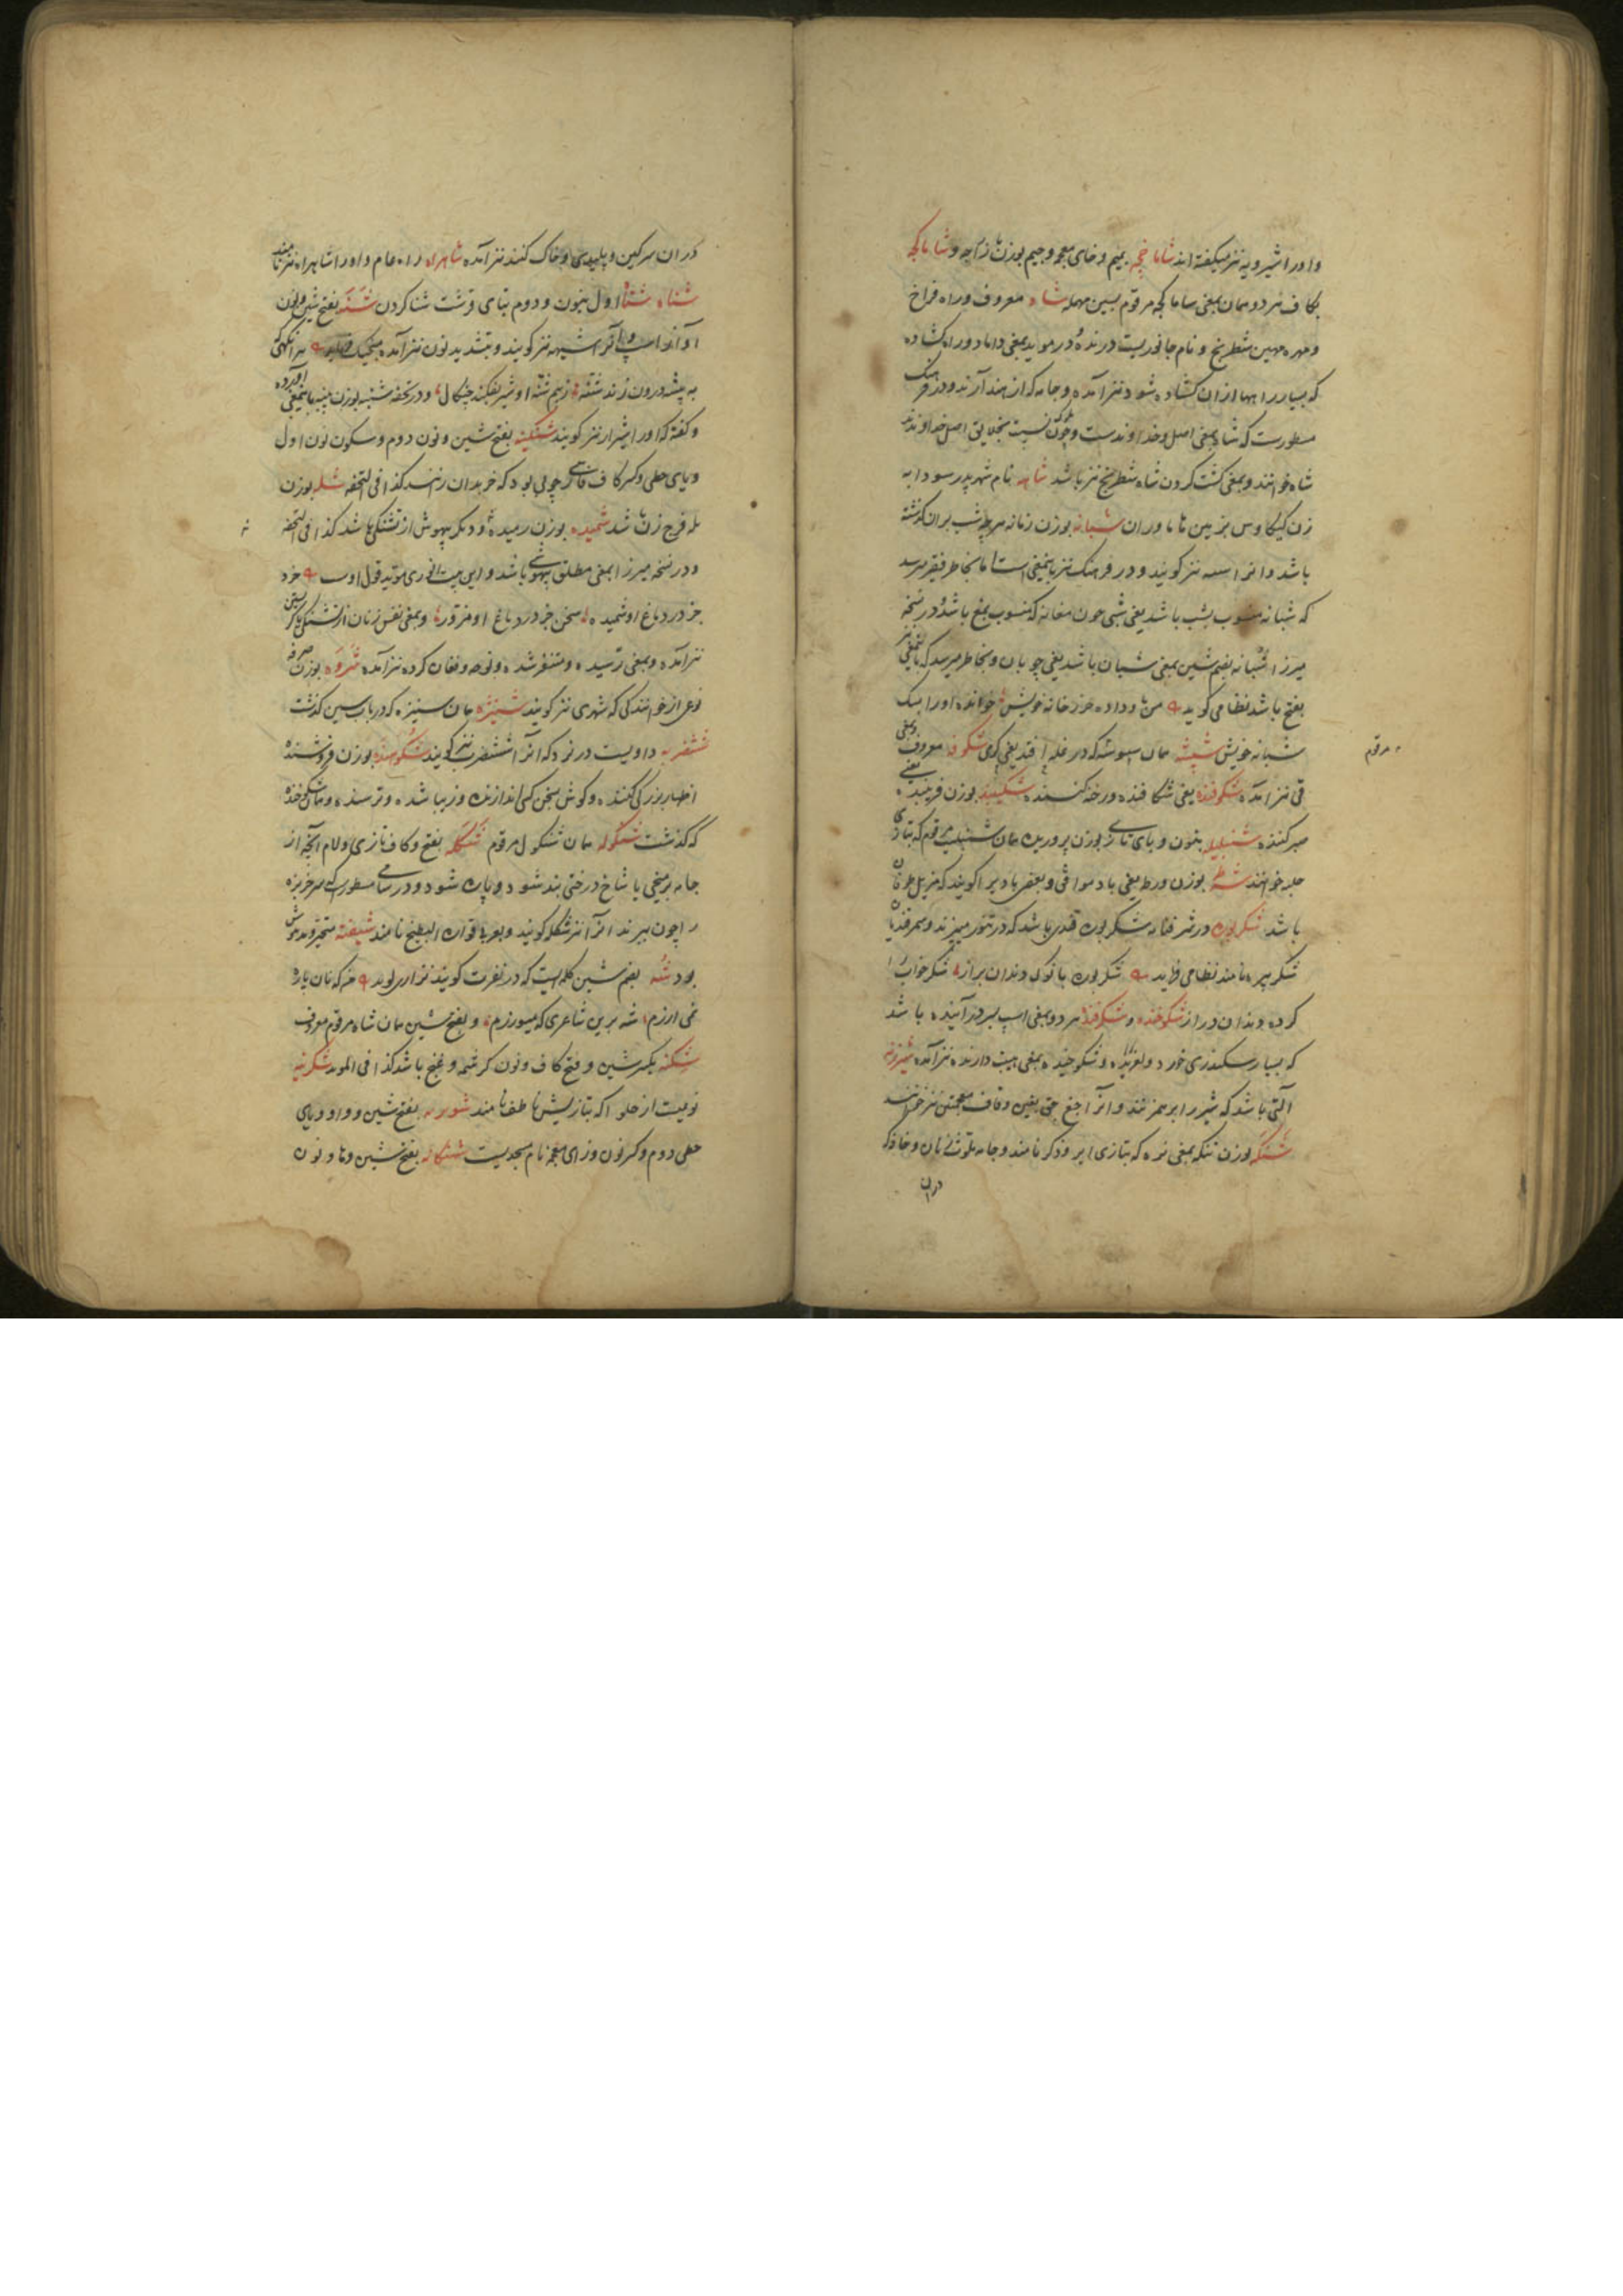 و او را شیرویه نیز میگفته اند شاماخچه بمیم و خای معجمه و جیم بوزن و شاماکچه
بکاف هر دو همان بمعنی ساماکچه مرقوم بسین مهمله شاه معروف و راه فراخ
و مهره مهین شطرنج و نام جانوریست درنده و در موید بمعنی داماد و راه کشاده
که بسیار راهها ازان کشاده شود نیز آمده و جامه که از هند آرند و در فرهنگ
مسطورست که شاه بمعنی اصل و خداوندست و چون نسبت بخلایق اصل خداوند
شاه خوانند و بمعنی کشت کردن شاه شطرنج نیز باشد شاهه نام شهر پدر سودابه
زن کیکاوس بزمین هاماوران شبانه بوزن زمانه هر چه شب بران گذشته
باشد و آنرا نیز گویند و در فرهنگ نیز باینمعنی است اما بخاطر فقیر میرسد
که شبانه منسوب بشب باشد یعنی شبی چون مغانه که منسوب بمغ باشد و در نسخه
میرزا شبانه بضم شین بمعنی شبان باشد یعنی چوپان و بخاطر میرسد که باینمعنی نیز
بفتح باشد نظامی گوید من داده خرد خانه خویش خوانده او را سگ
شبانه خویش شپشه همان سوسه که در غله افتد یعنی کرم شکوفه معروف و بمعنی
قی نیز آمده شکوفنده یعنی شکافنده و رخنه کننده شکیبنده بوزن فریبنده یعنی
صبر کننده شنبلیله بنون و بای تازی بوزن همان شنبلیت مرقوم که بتازی
حلبه خوانند شرطه بوزن ورطه یعنی باد موافق و بعضی بادی را گویند که مزیل طوفان
باشد شکربوره در شرفنامه شکربوره قندی باشد که در تنور میپزند و سمرقندیان
شکر پیره نامند نظامی فرماید شکربوره با نوک دندان براز شکر خواب را
کرده دندان دراز شکوخنده و شکرفنده هر دو بمعنی اسپ بسر درآینده باشد
که بسیار سکندری خورد و لغزیده و شکوخیده بمعنی هیبت دارنده نیز آمده شیرزنه
آلتی باشد که شیر را بر هم زنند و آنرا چغ یعنی بغین و قاف معجمتین نیز خوانند
شنگه بوزن تنگه بمعنی نره که بتازی ایر و ذکر نامند و جامه ملوث زنان و خاکروب که
دران
مرقوم
دران سرگین و پلیدی و خاک کنند نیز آمده شاهراه راه عام و او را شاهراه نیز نامند
شناه شتاه اول بنون و دوم بتای قرشت شنا کردن شنه بفتح شین و نون
آواز اسپ و آنرا شیهه نیز گویند و بتشدید نون نیز آمده منجیک فرماید هر آنگهی
به بیشه درون زند شنه ز بیم شنه او شیر بفکند چنگال و در تحفه شنبه بوزن پنبه باینمعنی آورده
و گفته که او را شیرار نیز گویند شنگینه بفتح شین و نون دوم و سکون نون اول
و یای حطی و کسر کاف فارسی چوبی بود که خر بدان رانند کذا فی التحفه شله بوزن
مله فرج زن باشد شمیده بوزن رمیده و دیگر بیهوش از تشنگی باشد کذا فی التحفه
و در نسخه میرزا بمعنی مطلق بیهوشی باشد و این بیت انوری موید قول اوست خرد
جز در دماغ او شمیده سخن جز در دماغ او مزور و بمعنی نفس زنان از تشنگی یا گریستن
نیز آمده و بمعنی ترسیده و متنفر شده و نوحه و فغان کرده نیز آمده شروه بوزن صرفه
نوعی از خوانندگی که شهری نیز گویند شنیزه همان سنیزه که در باب سین گذشت
ششضربه داویست در نرد که آنرا ششضرب نیز گویند شکوهنده بوزن فروشنده
اظهار بزرگی کننده و گوش بسخن کسی اندازنده و زیبا شده و ترسنده و همان شکوخنده
که گذشت شنگوله همان شنگول مرقوم شکله بفتح و کاف تازی و لام آنچه از
جامه بر میخی یا شاخ درختی بند شود و پاره شود و در سامی مسطور که سر خربزه
را چون ببرند آنرا نیز شکله گویند و بعربی قواره البطیخ نامند شیفته متحیر و مدهوش
بود شه بضم شین کلمه ایست که در نفرت گویند نزاری گوید منکه نان پاره
نمی ارزم شه برین شاعری که میورزم و بفتح شین همان شاه مرقوم معروف
شکنه بکسر شین و فتح کاف و نون کرشمه و غنج باشد کذا فی الموید شکرینه
نوعیست از حلوا که بتازیش ناطف نامند بفتح شین و واو و یای
حطی دوم و کسر نون و زای معجمه نام مسجدیست بفتح شین و ها و نون